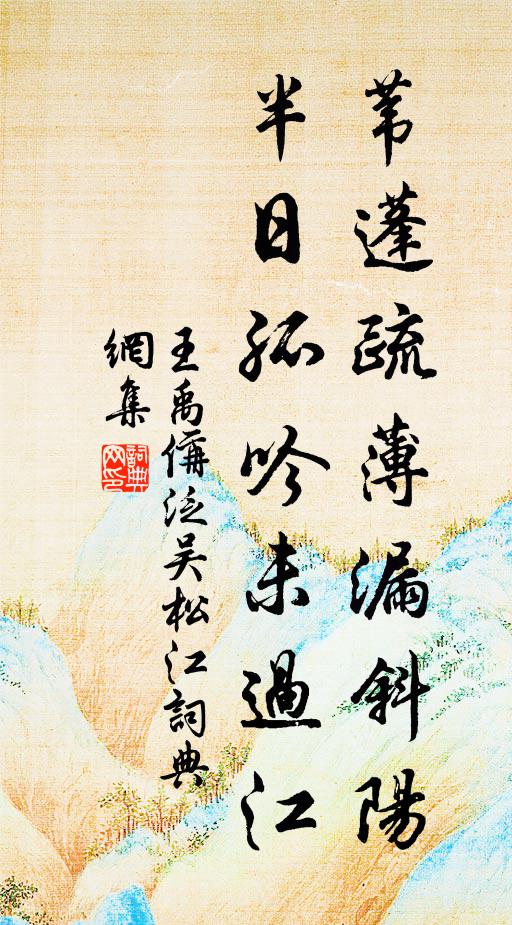 苇蓬疏薄漏斜陽
半日孤吟未過江
王禹偁泛吴松江詞典
網集
詞典
网印